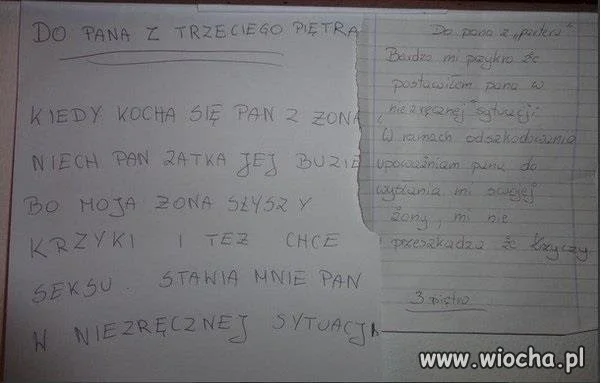 DO PANA Z TRZECIEGO PIĘTRA
KIEDY KOCHA SIĘ PAN Z ŻONĄ
NIECH PAN ZATKA JEJ BUZIE
BO MOJA ZONA SŁYSZY
KRZYKI I TEZ CHCE
SEKSU. STAWIA MNIE PAN
W NIEZRĘCZNEJ SYTUACJI
Do pana z "parteru"
Bardzo mi przykro że
postawiłem pana w
"niezręcznej sytuacji"
W ramach odszkodowania
upoważniam pana do
wysłania mi swojej
żony, mi nie
przeszkadza że krzyczy
3 piętro
www.wiocha.pl